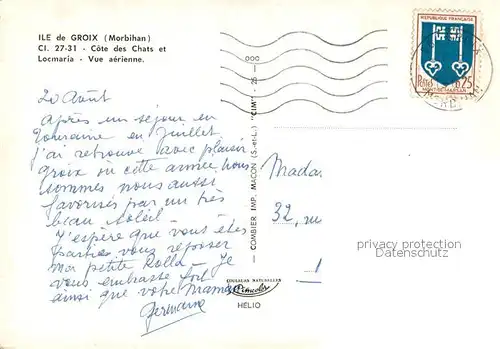 ILE de GROIX (Morbihan)
Cl. 27-31 - Côte des Chats et
Locmaria - Vue aérienne.
20 Août
Après un séjour en
Touraine en Juillet
j'ai retrouvé avec plaisir
Groix où cette année nous
sommes nous aussi
favorisés par un très
beau soleil -
J'espère que vous êtes
parties vous reposer
ma petite Rolla - Je
vous embrasse fort
ainsi que votre Maman
Germaine
COMBIER IMP. MACON (S.-et-L.) "CIM"
COULEURS NATURELLES
HELIO
REPUBLIQUE FRANCAISE
Postes 0,25
MONT-DE-MARSAN
Madam
32, r
1
privacy protection
Datenschutz